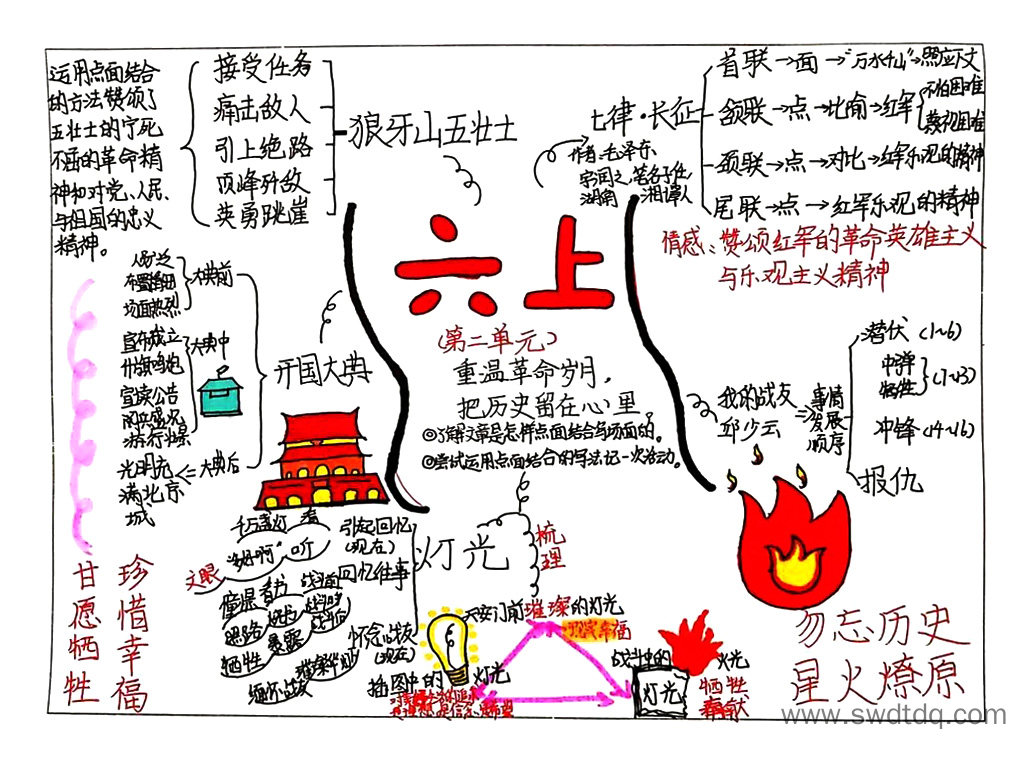 六上
(第二单元)
重温革命岁月,
把历史留在心里。
◎了解文章是怎样点面结合写场面的。
◎尝试运用点面结合的写法记一次活动。
狼牙山五壮士
接受任务
痛击敌人
引上绝路
顶峰歼敌
英勇跳崖
运用点面结合
的方法赞颂了
五壮士的宁死
不屈的革命精
神和对党、人民、
与祖国的忠义
精神。
七律·长征
作者:毛泽东,
字润之,笔名子任,
湖南 湘潭人
首联→面→“万水千山”→照应下文
颔联→点→比喻→红军
不怕困难
藐视困难
颈联→点→对比→红军乐观的精神
尾联→点→红军乐观的精神
情感:赞颂红军的革命英雄主义
与乐观主义精神
开国大典
大典前
人数之
布置
场面热烈
大典中
宣布成立
升旗鸣炮
宣读公告
阅兵盛况
游行
大典后
光明充
满北京
城
我的战友
邱少云
事情
发展
顺序
潜伏(1~6)
中弹
牺牲
(7~13)
冲锋(14~16)
报仇
灯光
梳
理
引起回忆
(现在)
回忆往事
怀念战友
(现在)
文眼
“多好啊”
看
听
憧憬
思路
暴露
牺牲
缅怀战友
天安门前璀璨的灯光
插图中的
灯光
战斗中的
火光
灯光
牺牲
奉献
甘愿牺牲
珍惜幸福
勿忘历史
星火燎原
www.swdtdq.com